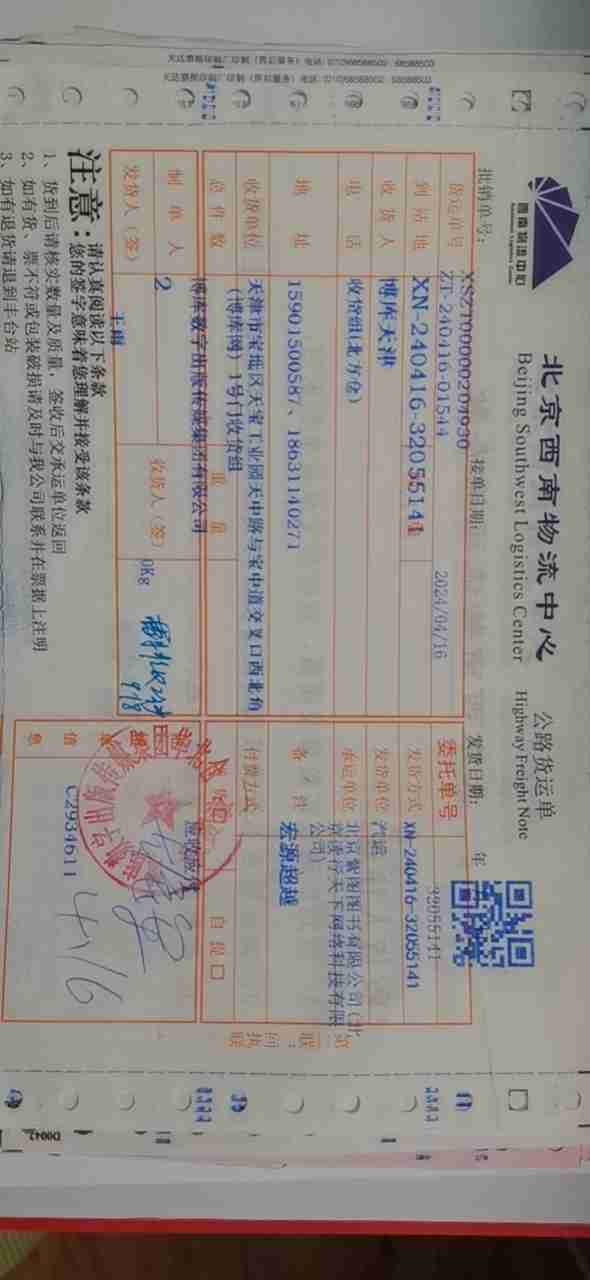 西南物流中心
北京西南物流中心
Beijing Southwest Logistics Center
公路货运单
Highway Freight Note
批销单号：XSZT00000204930
接单日期：2024/04/16
发货日期： 年
货运单号 ZT-240416-01544
委托单号 32055141
到站地 XN-240416-32055141
发货方式 XN-240416-32055141
收货人 博库天津
发货单位 汽运
电话 收货组(北方仓)
承运单位 北京紫图图书有限公司(北京读行天下网络科技有限公司)
地址 15901500587、18631140271
备注 宏源超越
收货单位 天津市宝坻区天宝工业园天中路与宝中道交叉口西北角(博库网)1号门收货组
付费方式
自提口
总件数 博库数字出版传媒集团有限公司
重量
制单人 2
收货人(签) 0Kg
发货人(签) 王雨
信息
C2934611
4/16
第二联：回执联
注意：
请认真阅读以下条款
您的签字意味着您理解并接受该条款
1、货到后请核实数量及质量，签收后交承运单位返回
2、如有货、票不符或包装破损请及时与我公司联系并在票据上注明
3、如有退货请退到丰台站